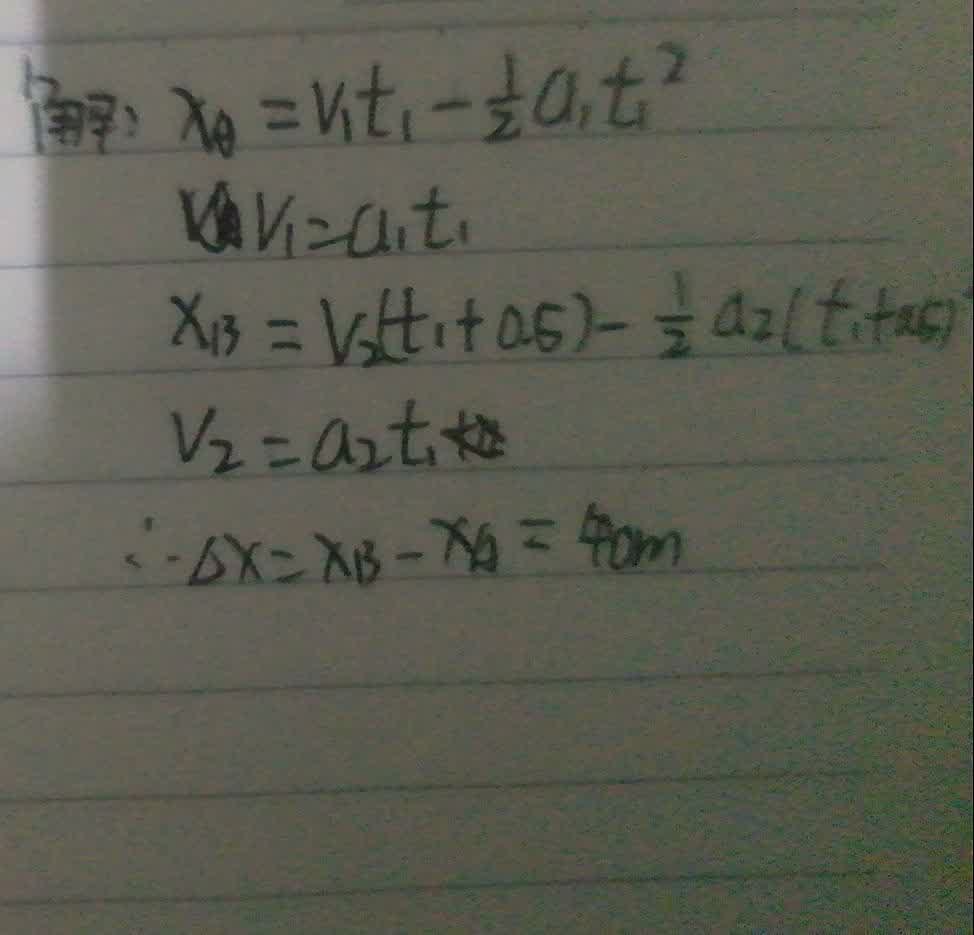 解: x_A = v₁t₁ - ½a₁t₁²
v₁ = a₁t₁
x_B = v₂(t₁+0.5) - ½a₂(t₁+0.5)²
v₂ = a₂t₁
∴ Δx = x_B - x_A = 40m